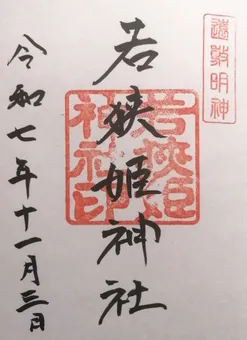 遠敷明神
若狭姫神社
若狭姫
神社印
令和七年十一月三日